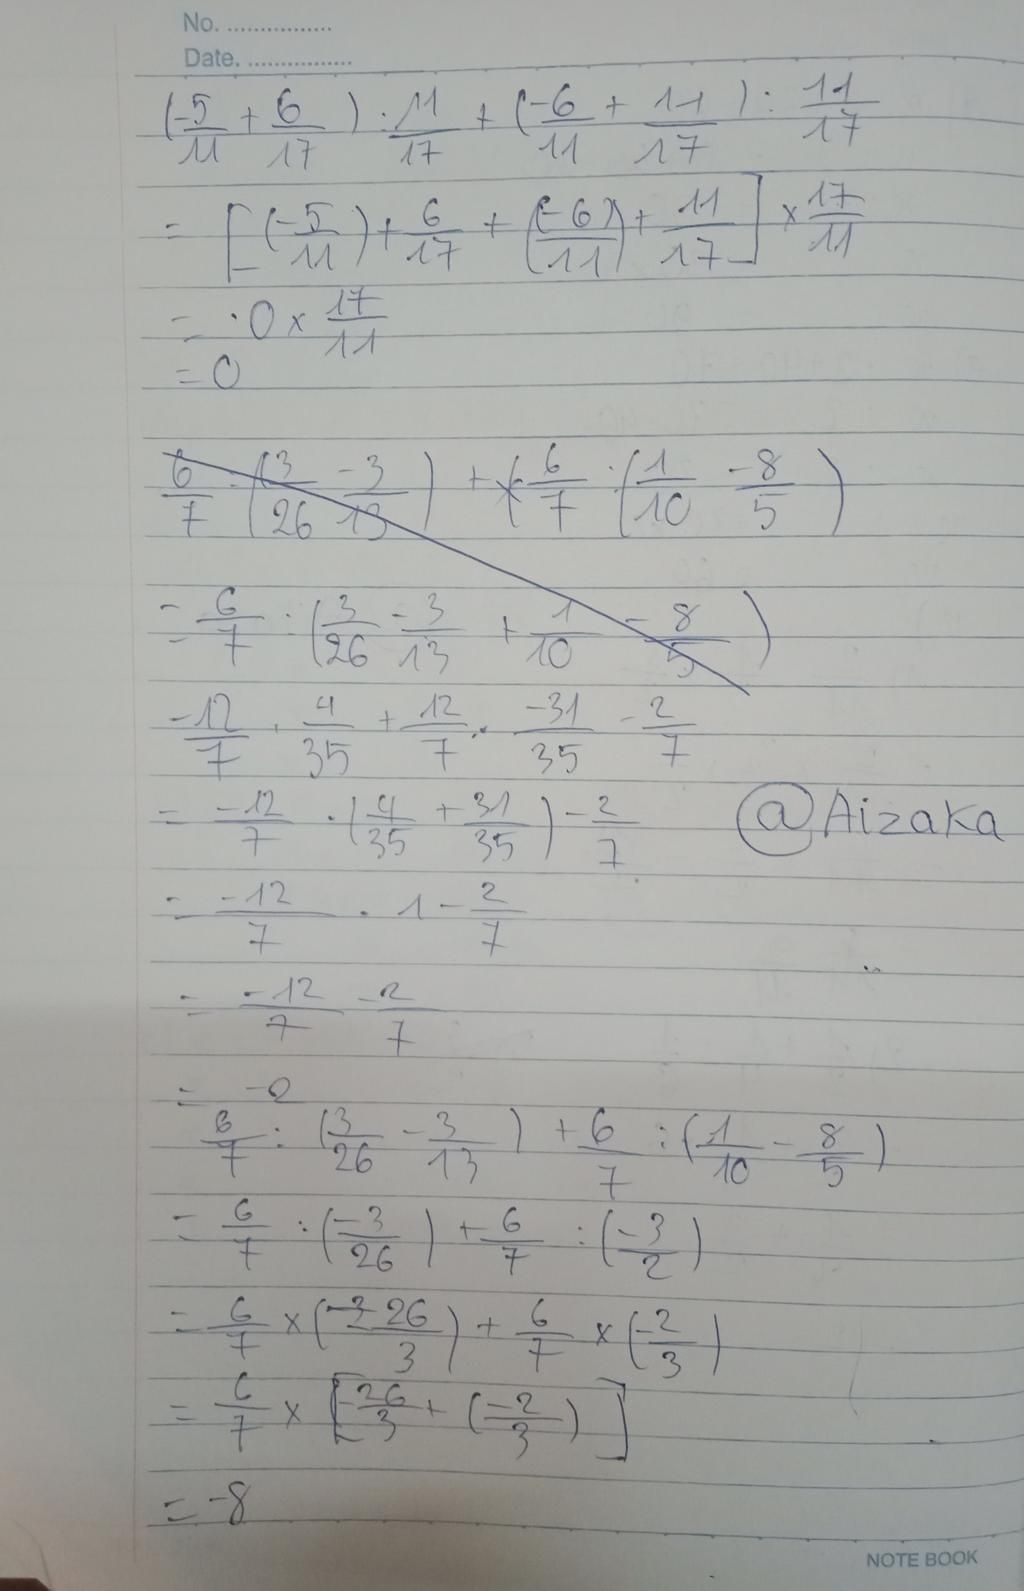 No. ................
Date. ................
(-5/11 + 6/17) : 11/17 + (-6/11 + 11/17) : 11/17
= [(-5/11) + 6/17 + (-6/11) + 11/17] × 17/11
= 0 × 17/11
= 0
6/7 : (3/26 - 3/13) + 6/7 : (1/10 - 8/5)
= 6/7 : (3/26 - 3/13 + 1/10 - 8/5)
-12/7 . 4/35 + 12/7 . -31/35 - 2/7
= -12/7 . (4/35 + 31/35) - 2/7
@Aizaka
= -12/7 . 1 - 2/7
= -12/7 - 2/7
= -2
6/7 : (3/26 - 3/13) + 6/7 : (1/10 - 8/5)
= 6/7 : (-3/26) + 6/7 : (-3/2)
= 6/7 × (-26/3) + 6/7 × (-2/3)
= 6/7 × [-26/3 + (-2/3)]
= -8
NOTE BOOK